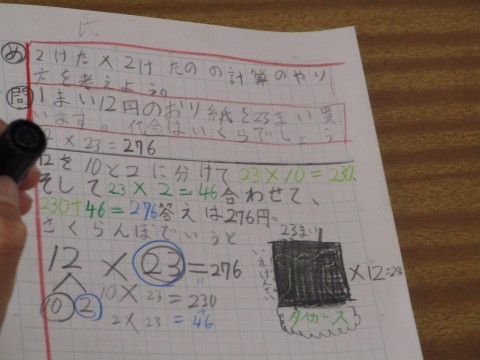 め 2けた×2けたのの計算のやり
方を考えよう。
問 1まい12円のおり紙を23まい買
います。代金はいくらでしょう
2×23=276
12を10と2に分けて23×10=230、
そして23×2=46合わせて、
230+46=276答えは276円。
さくらんぼでいうと
12×23=276
10 2
10×23=230
2×23=46
23まい
×12=28
タイガース